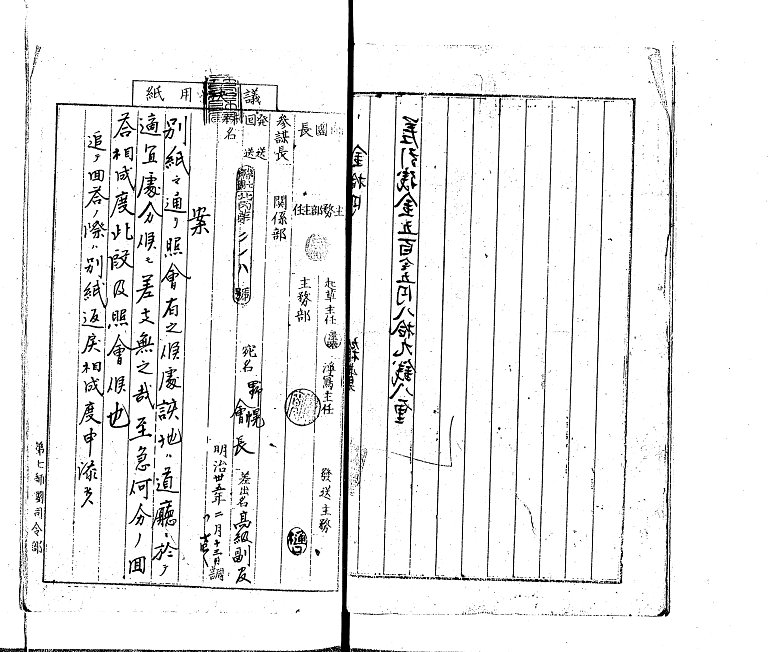 議用紙
師團長
參謀長
主務部主任
関係部
主務部
起草主任
淨寫主任
發送主務
樋口
発送
回送
番號第二一八號
件名
宛名
野幌會長
差出名
高級副官
明治卅五年二月十三日調
案
別紙之通リ照會有之候處該地ハ道廳ニ於テ
適宜處分候モ差支無之哉至急何分ノ回
答相成度此段及照會候也
追テ回答ノ際ハ別紙返戻相成度申添候
第七師團司令部
金拾円
差引残金五百〇五円八拾九銭八厘